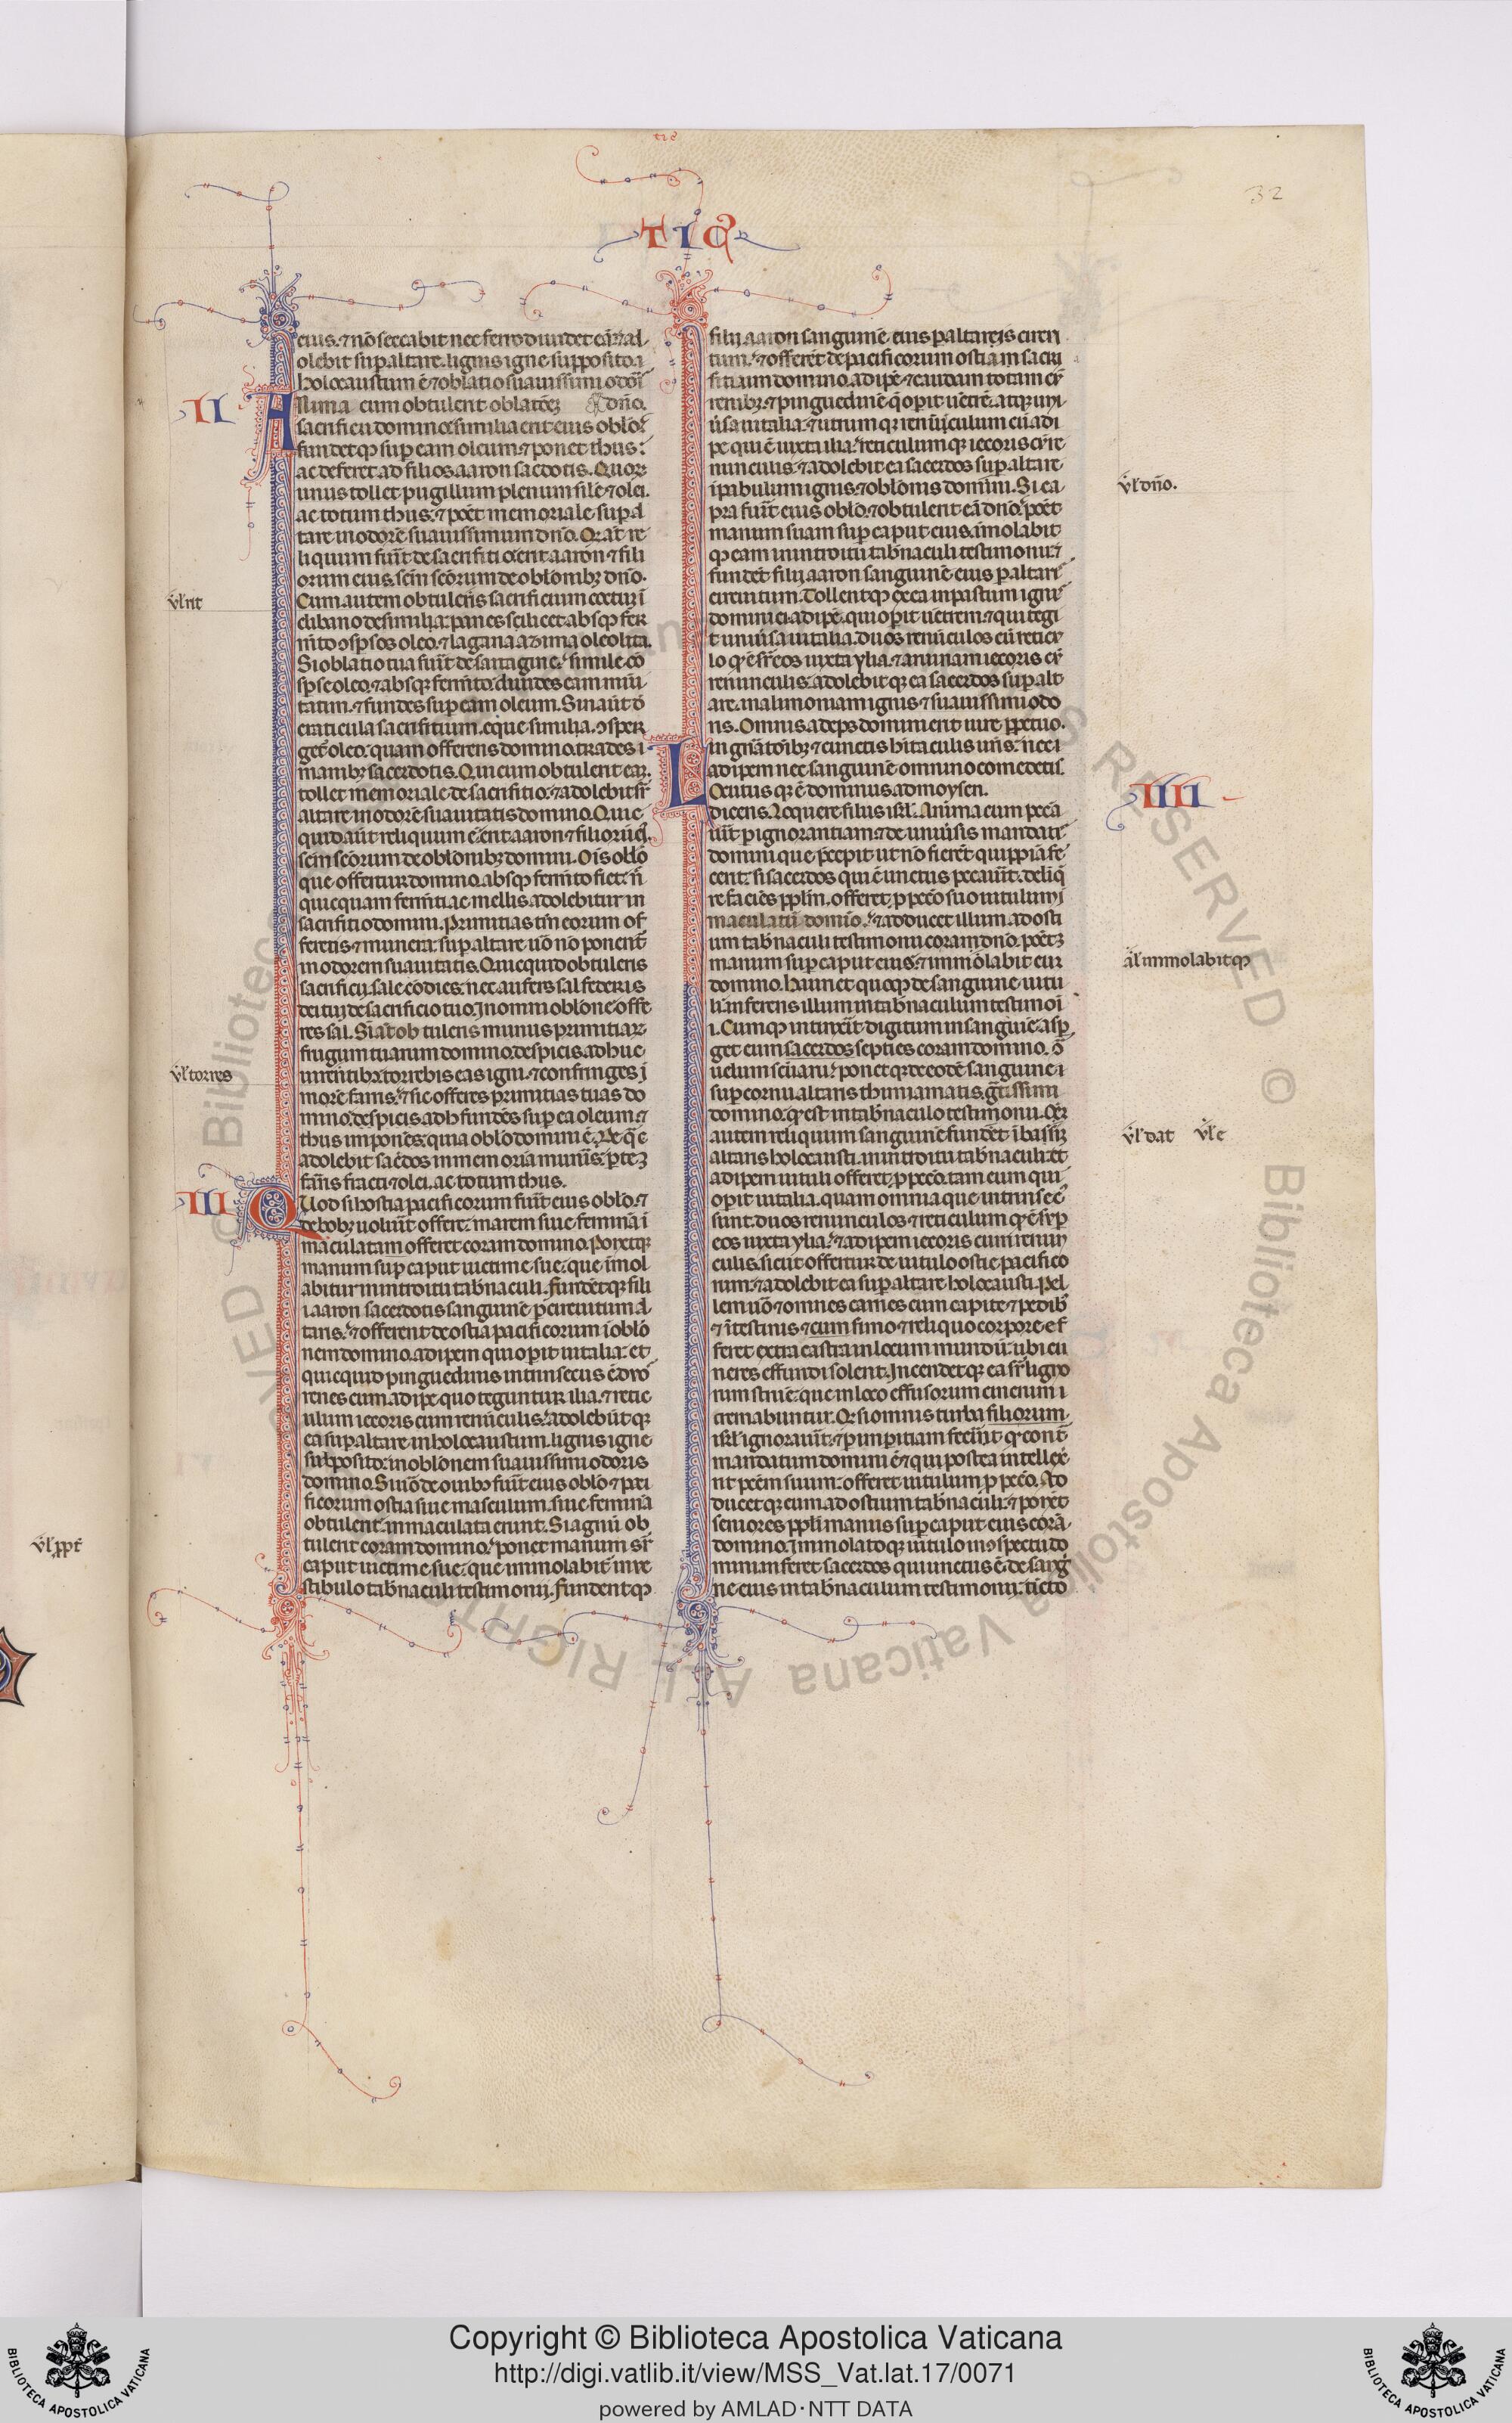 32
TIC9
eius. ⁊ nō seccabit nec ferro diuidet eā. ⁊ al
olebit sup altare. lignis igne supposito. ī
holocaustum ē ⁊ oblatio suauissimi odoris
II
Anima cum obtulerit oblatōēꝫ dn̄o.
sacrificii domino. similia erit eius obło.
fundetqꝫ sup eam oleum. ⁊ ponet thus:
ac deferet ad filios aaron sacerdotis. Quorꝝ
unus tollet pugillum plenum simile ⁊ olei.
ac totum thus. ⁊ ponet memoriale sup al
tare in odorē suauissimum dn̄o. Qd̄ aūt re
liquum fuit̄ de sacrifitio erit aaron ⁊ fili
orum eius. scm̄ scōrum de oblonibꝫ dn̄o.
Cum autem obtuleris sacrificium coctuꝫ ī
clibano de similia: panes scilicet absqꝫ fer
mento ↄspsos oleo. ⁊ lagana azima oleo lita.
Si oblatio tua fuit̄ de sartagine. simile cō
spse oleo. ⁊ absqꝫ fermto. diuides eam minu
tatim. ⁊ fundes sup eam oleum. Sin aūt d̄
craticula sacrifitium. eque similia. ↄsper
get oleo. quam offerens domino. trades ī
manibꝫ sacerdotis. Qui cum obtulerit eaꝫ.
tollet memoriale de sacrifitio. ⁊ adolebit sr̄
altare in odorē suauitatis domino. Quic
quid aūt reliquum ē. erit aaron ⁊ filioruꝫ ei.
scm̄ scōrum de oblonibꝫ domini. Ois obło
que offertur domino. absqꝫ fermto fiet. n̄
quicquam fermti ac mellis adolebitur in
sacrifitio domini. Primitias tm̄ eorum of
feretis ⁊ munera. sup altare uō nō ponent̄
in odorem suauitatis. Quicquid obtuleris
sacrificii. sale cōdies. nec auferes sal federis
dei tui de sacrificio tuo. In omni oblone offe
res sal. Si aūt obtuleris munus primitiarꝝ
frugum tuarum domino. de spicis adhuc
uirentibꝫ torrebis eas igni. ⁊ confringes ī
more farris. ⁊ sic offeres primitias tuas do
mino. de spicis adh fundēs sup ea oleum. ⁊
thus imponēs. quia obło domini ē. De q̄ ē
adolebit sacdos in memoriā muneris. ptēꝫ
farris fracti ⁊ olei. ac totum thus.
III
Quod si hostia pacificorum fuit̄ eius obło. ⁊
de bobꝫ uoluit̄ offere. marem siue feminā ī
maculatam offeret coram domino. Ponetqꝫ
manum sup caput uictime sue. que immol
abitur in introitu tabnaculi. fundētqꝫ fili
i aaron sacerdotis sanguinē p circuitum al
taris. ⁊ offerent de ostia pacificorum ī obło
nem domino. adipem qui opit uitalia. et
quicquid pinguedinis intrinsecus ē. duos
renes cum adipe quo teguntur ilia. ⁊ retic
ulum iecoris cum renuculis. adolebūt qꝫ
ea sup altare in holocaustum. lignis igne
supposito. in oblonem suauissimi odoris
domino. Si uō de ouibꝫ fuit̄ eius obło ⁊ paci
ficorum ostia siue masculum. siue feminā
obtulerit. immaculata erunt. Si agnū ob
tulerit coram domino. ponet manum sr̄
caput uictime sue. que immolabit̄ in ue
stibulo tabnaculi testimonij. fundentqꝫ
filij aaron sanguinē eius p altaris circu
tum. ⁊ offeret de pacificorum ostia in sacri
fitium domino. adipē ⁊ caudam totam cū
renibꝫ. ⁊ pinguedinē q̄ opit uentrē. atqꝫ uni
uersa uitalia. ⁊ utrumqꝫ renunculum cū adi
pe qui ē iuxta ilia. reticulumqꝫ iecoris cū re
nunculis. ⁊ adolebit ea sacerdos sup altare
ī pabulum ignis ⁊ oblonis domini. Si ca
pra fuit̄ eius obło. ⁊ obtulerit eā dn̄o. ponet
manum suam sup caput eius. imolabit
qꝫ eam in introitu tabnaculi testimonii. ⁊
fundēt filij aaron sanguinē eius p altaris
circuitum. Tollentqꝫ ex ea in pastum ignis
dominici. adipē. qui opit uentrem. ⁊ qui tegi
t uniuersa uitalia. duos renūculos cū reticu
lo qd̄ ē sr̄ eos iuxta ylia. ⁊ aruinam iecoris cū
renunculis. adolebitqꝫ ea sacerdos sup alt
are. in alimoniam ignis ⁊ suauissimi odo
ris. Omnis adeps domini erit iure ppetuo.
in gn̄atōibꝫ ⁊ cunctis hitaculis uris. nec
adipem nec sanguinē omnino comedetis.
IIII
Locutus qꝫ ē dominus ad moysen.
dicens. Loquere filiis isrl. Anima cum pecca
uit̄ p ignorantiam. ⁊ de uniuersis mandatis
domini que precepit ut nō fierēt quippiā fe
cerit. si sacerdos qui ē unctus peccauit̄. delinq
re faciēs pplm. offeret p pccō suo uitulum ī
maculatū domino. ⁊ adducet illum ad osti
um tabnaculi testimonii coram dn̄o. ponetqꝫ
manum sup caput eius. ⁊ immolabit eum
domino. hauriet quoqꝫ de sanguine uitu
li. inferens illum in tabnaculum testimoni
i. Cumqꝫ intinxit̄ digitum in sanguinē. asp
get eum sacerdos septies coram domino. ↄ
uelum sctūarii. ponetqꝫ de eodē sanguine ī
sup cornu altaris thimiamatis. gtissimi
domino. qd̄ est in tabnaculo testimonii. Oēm
autem reliquum sanguinē fundet ī basim
altaris holocausti. in introitu tabnaculi. et
adipem uituli offeret p pccō. tam eum qui
opit uitalia. quam omnia que intrinsecus
sunt. duos renunculos ⁊ reticulum qd̄ ē sup
eos iuxta ylia. ⁊ adipem iecoris cum renun
culis. sicut offertur de uitulo ostie pacifico
rum. ⁊ adolebit ea sup altare holocausti. Pel
lem uō ⁊ omnes carnes cum capite ⁊ pedibꝫ
⁊ ītestinis ⁊ cum fimo ⁊ reliquo corpore. ef
feret extra castra in locum mundū. ubi ci
neres effundi solent. Incendetqꝫ ea sr̄ ligno
rum struē. que in loco effusorum cinerum ī
cremabuntur. Qd̄ si omnis turba filiorum
isrl ignorauit̄. ⁊ p impitiam fecit̄ qd̄ cont̄
mandatum domini ē. ⁊ qui postea intellexe
rit pccm̄ suum. offeret uitulum p pccō. Ad
ducetqꝫ eum ad ostium tabnaculi. ⁊ ponēt
seniores ppli manus sup caput eius corā
domino. Immolatoqꝫ uitulo in ↄspectu do
mini. inferet sacerdos qui unctus ē. de sangi
ne eius in tabnaculum testimonij. tincto
ul̄ rit
ul̄ torres
ul̄ ppt̄
ul̄ dn̄o.
al̄ immolabitqꝫ
ul̄ dat ul̄ e
Copyright © Biblioteca Apostolica Vaticana
http://digi.vatlib.it/view/MSS_Vat.lat.17/0071
powered by AMLAD·NTT DATA
BIBLIOTECA APOSTOLICA VATICANA
BIBLIOTECA APOSTOLICA VATICANA